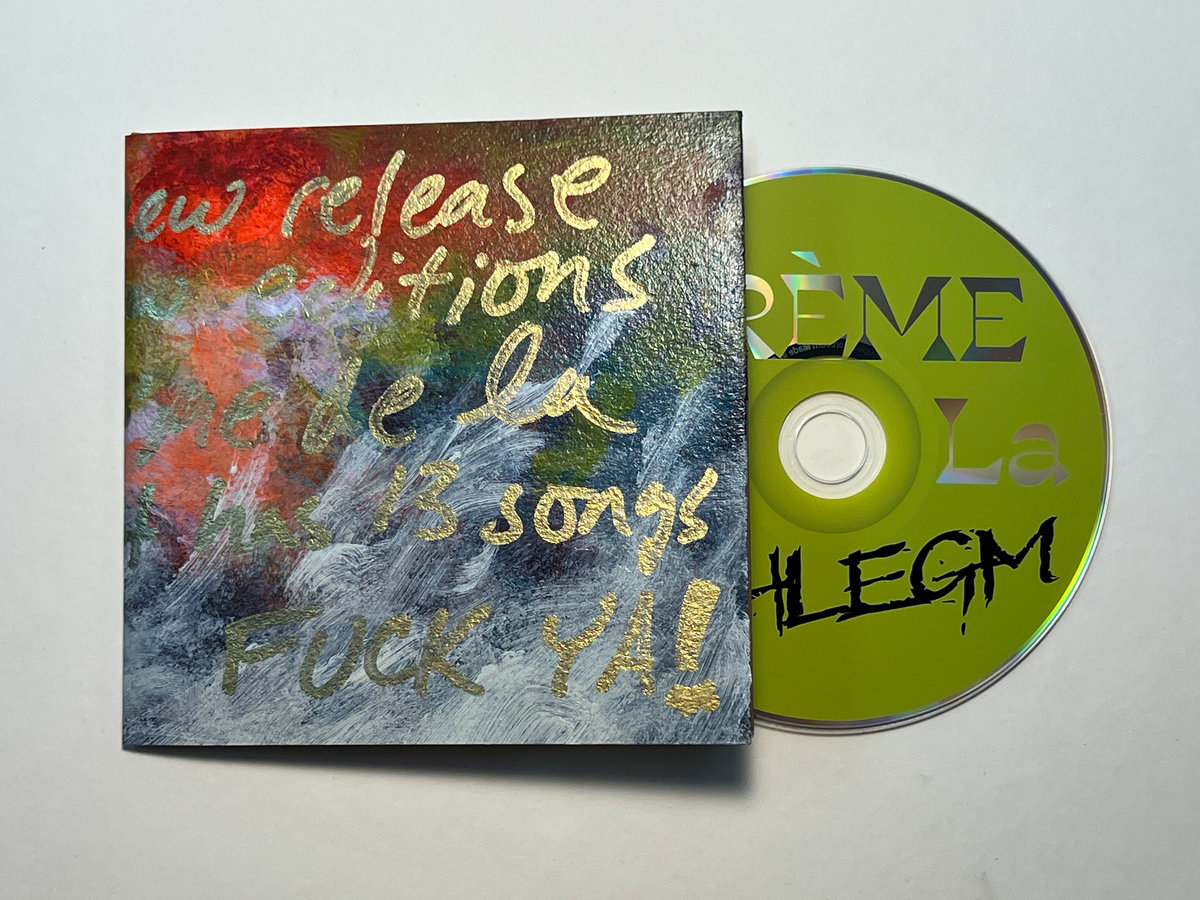 ew release
editions
me de la
has 13 songs
FUCK YA!
RÈME
La
HLEGM